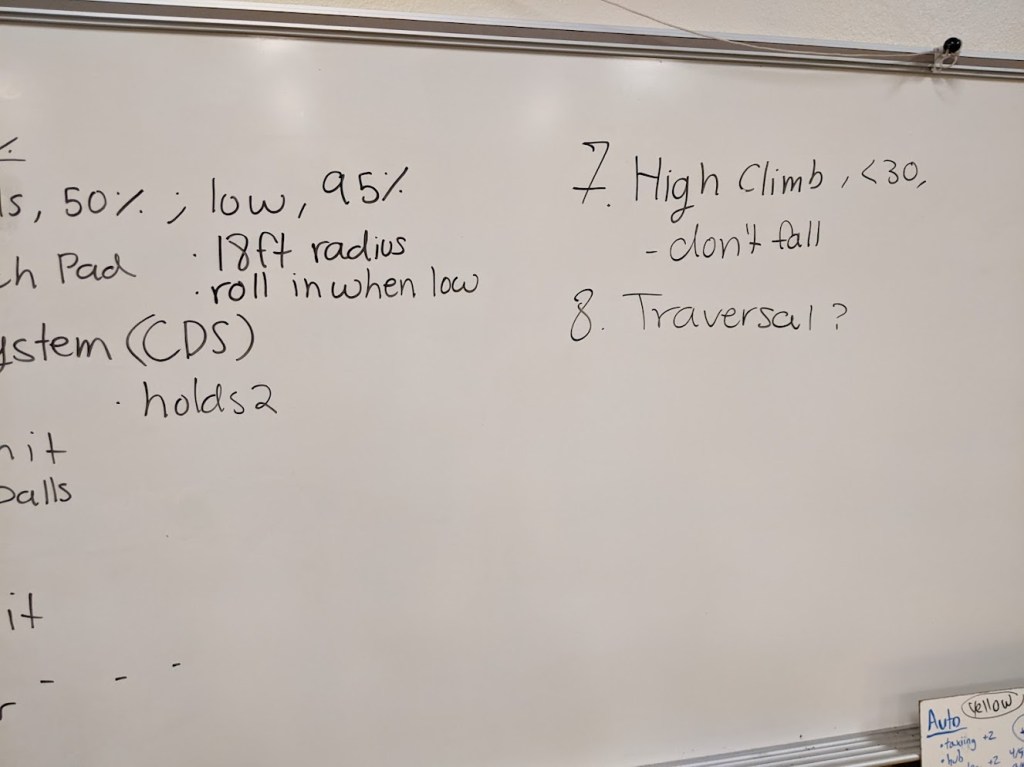 %
ls, 50%; low, 95%
ch Pad · 18ft radius
· roll in when low
ystem (CDS)
· holds 2
nit
balls
it
- - -
r
7. High Climb, <30,
- don't fall
8. Traversal?
Auto yellow
• taxiing +2
• hub
+2